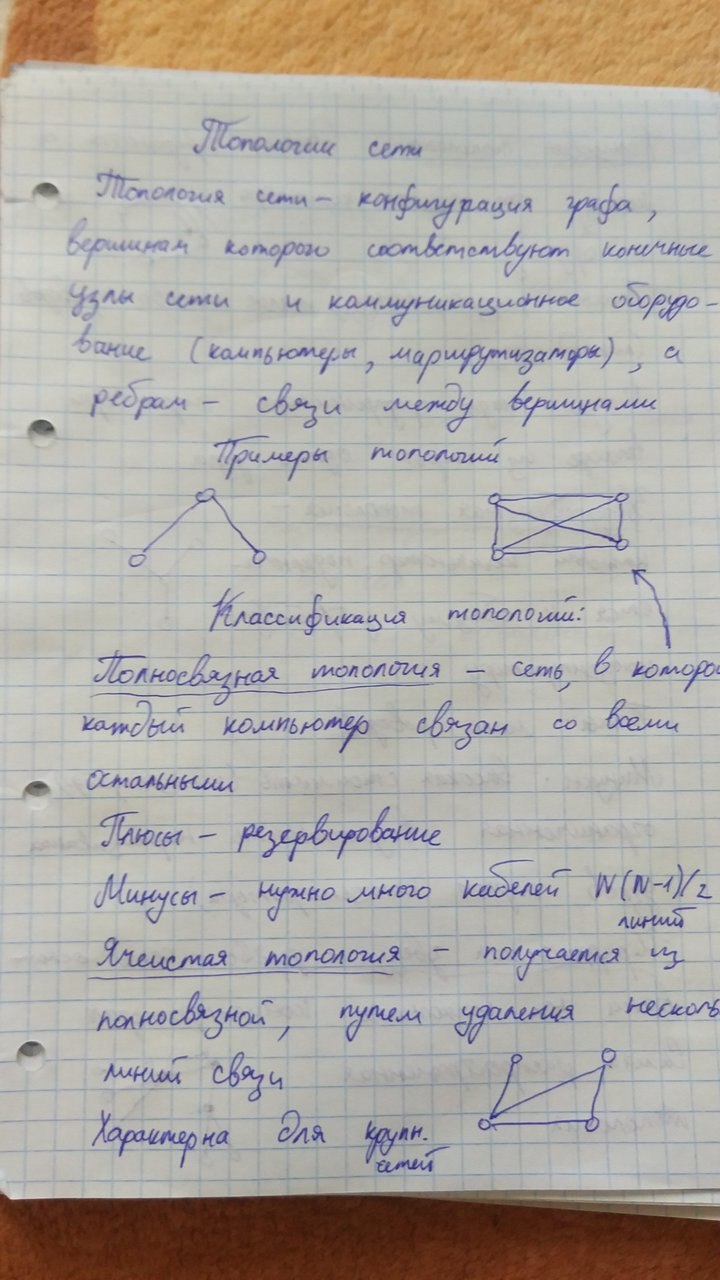 Топологии сети
Топология сети – конфигурация графа,
вершинам которого соответствуют конечные
узлы сети и коммуникационное оборудо-
вание (компьютеры, маршрутизаторы), а
ребрам – связи между вершинами
Примеры топологий
Классификация топологий:
Полносвязная топология – сеть, в которо
каждый компьютер связан со всеми
остальными
Плюсы – резервирование
Минусы – нужно много кабелей N(N-1)/2
линий
Ячеистая топология – получается из
полносвязной, путем удаления несколь
линий связи
Характерна для крупн.
сетей